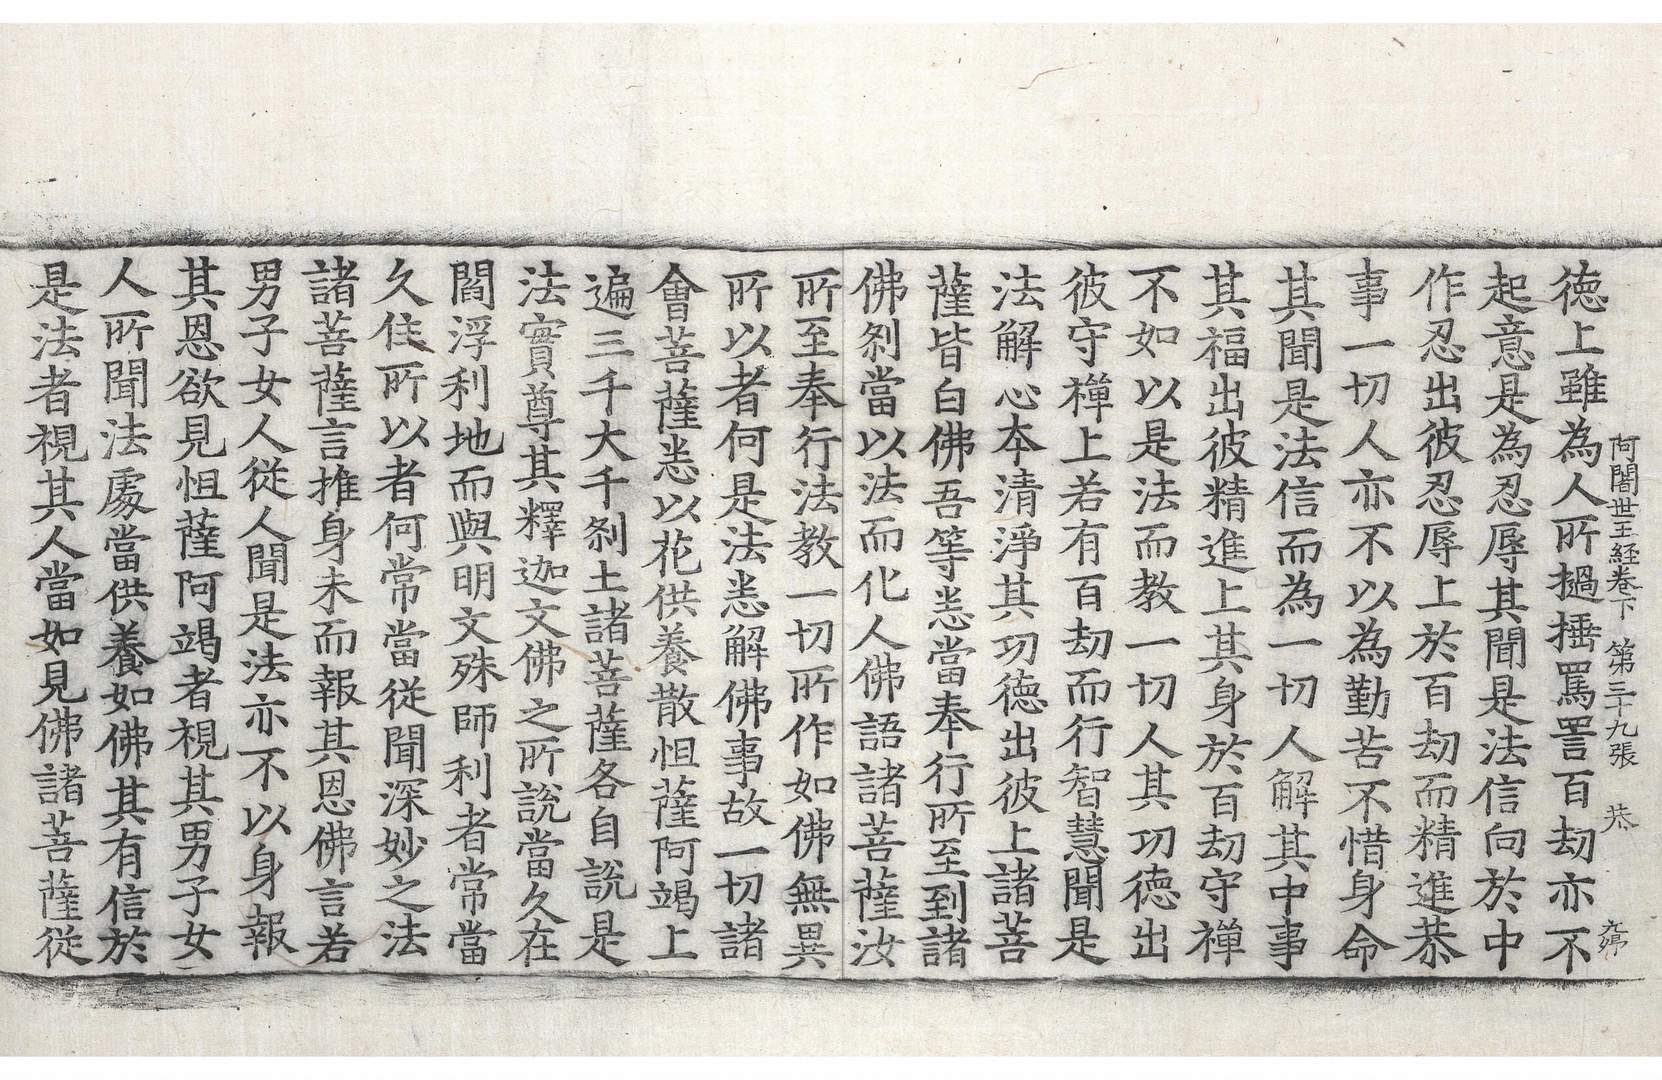 阿闍世王経卷下 第三十九張 恭
德上雖為人所撾捶罵詈百劫亦不
起意是為忍辱其聞是法信向於中
作忍出彼忍辱上於百劫而精進恭
事一切人亦不以為勤苦不惜身命
其聞是法信而為一切人解其中事
其福出彼精進上其身於百劫守禪
不如以是法而教一切人其功德出
彼守禪上若有百劫而行智慧聞是
法解心本清淨其功德出彼上諸菩
薩皆白佛吾等悉當奉行所至到諸
佛剎當以法而化人佛語諸菩薩汝
所至奉行法教一切所作如佛無異
所以者何是法悉解佛事故一切諸
會菩薩悉以花供養散怛薩阿竭上
遍三千大千剎土諸菩薩各自說是
法實尊其釋迦文佛之所說當久在
閻浮利地而與明文殊師利者常當
久住所以者何常當從聞深妙之法
諸菩薩言推身未而報其恩佛言若
男子女人從人聞是法亦不以身報
其恩欲見怛薩阿竭者視其男子女
人所聞法處當供養如佛其有信於
是法者視其人當如見佛諸菩薩從